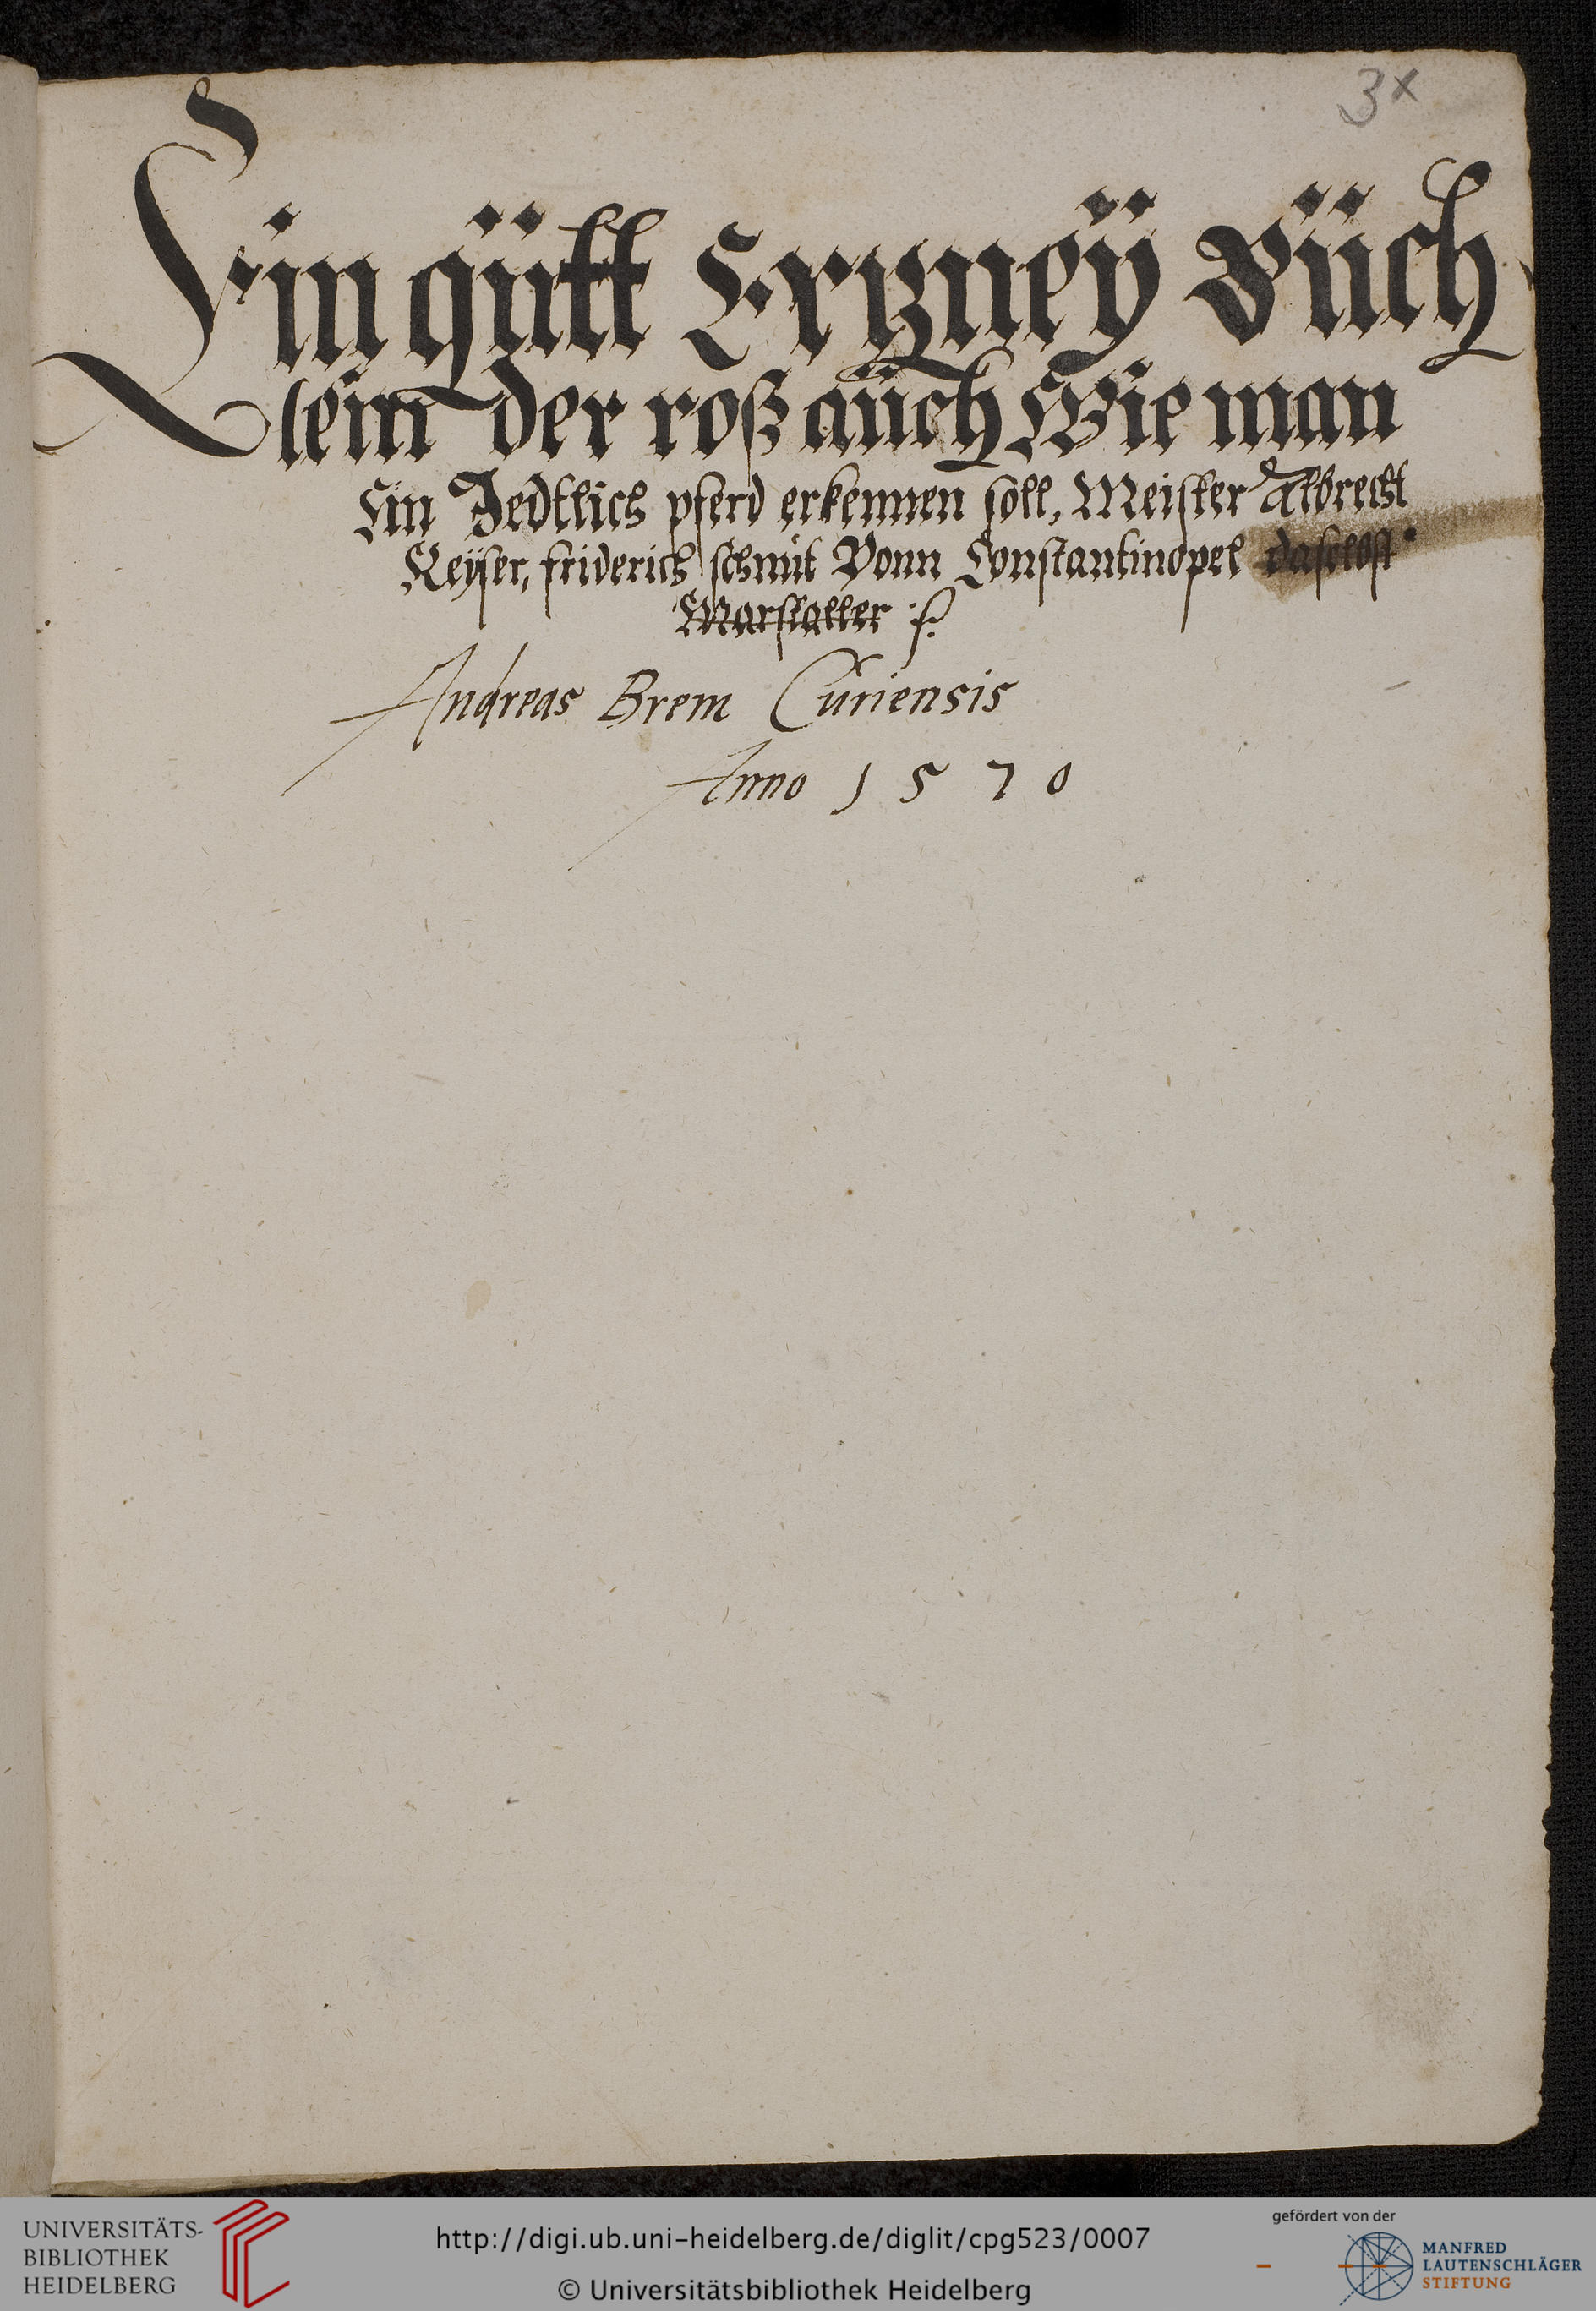 3x
Ein gůtt Ertzney Bůch
lein der roß aůch Wie man
Ein Jedtlich pferd erkennen soll, Meister Albrecht
Keÿser, friderich schmit Vonn Constantinopel daselbst
Marstaller
Andreas Brem Curiensis
Anno 1570
UNIVERSITÄTS-
BIBLIOTHEK
HEIDELBERG
http://digi.ub.uni-heidelberg.de/diglit/cpg523/0007
© Universitätsbibliothek Heidelberg
gefördert von der
MANFRED
LAUTENSCHLÄGER
STIFTUNG